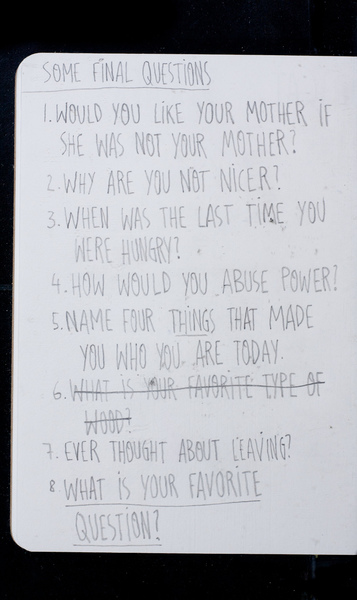 SOME FINAL QUESTIONS
1. WOULD YOU LIKE YOUR MOTHER IF
SHE WAS NOT YOUR MOTHER?
2. WHY ARE YOU NOT NICER?
3. WHEN WAS THE LAST TIME YOU
WERE HUNGRY?
4. HOW WOULD YOU ABUSE POWER?
5. NAME FOUR THINGS THAT MADE
YOU WHO YOU ARE TODAY.
6. WHAT IS YOUR FAVORITE TYPE OF
WOOD?
7. EVER THOUGHT ABOUT LEAVING?
8 WHAT IS YOUR FAVORITE
QUESTION?